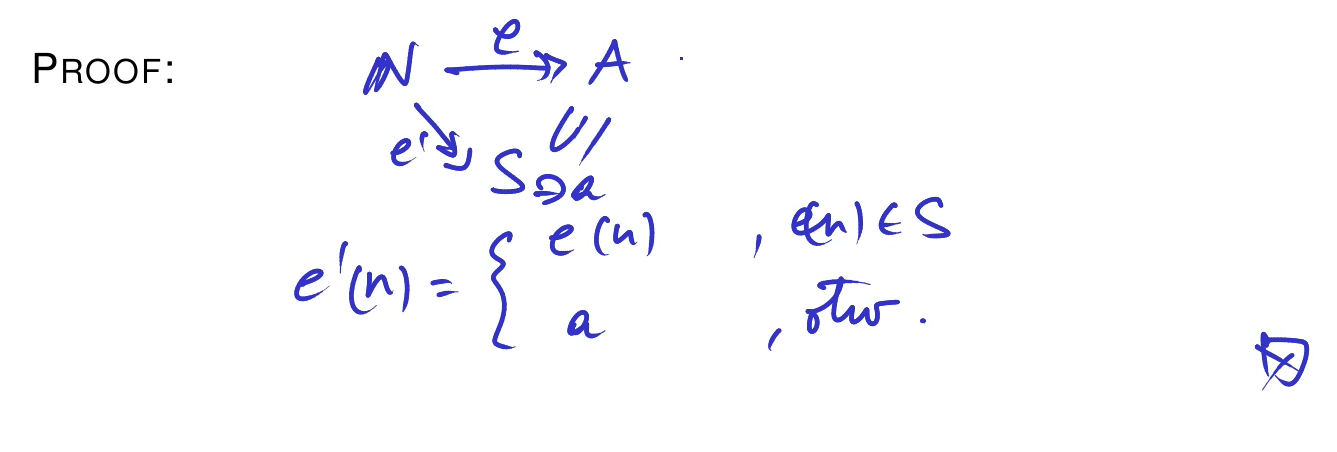 PROOF: ℕ e A
e' ∪/
S ∋ a
e'(n) = { e(n) , e(n) ∈ S
a , otw.